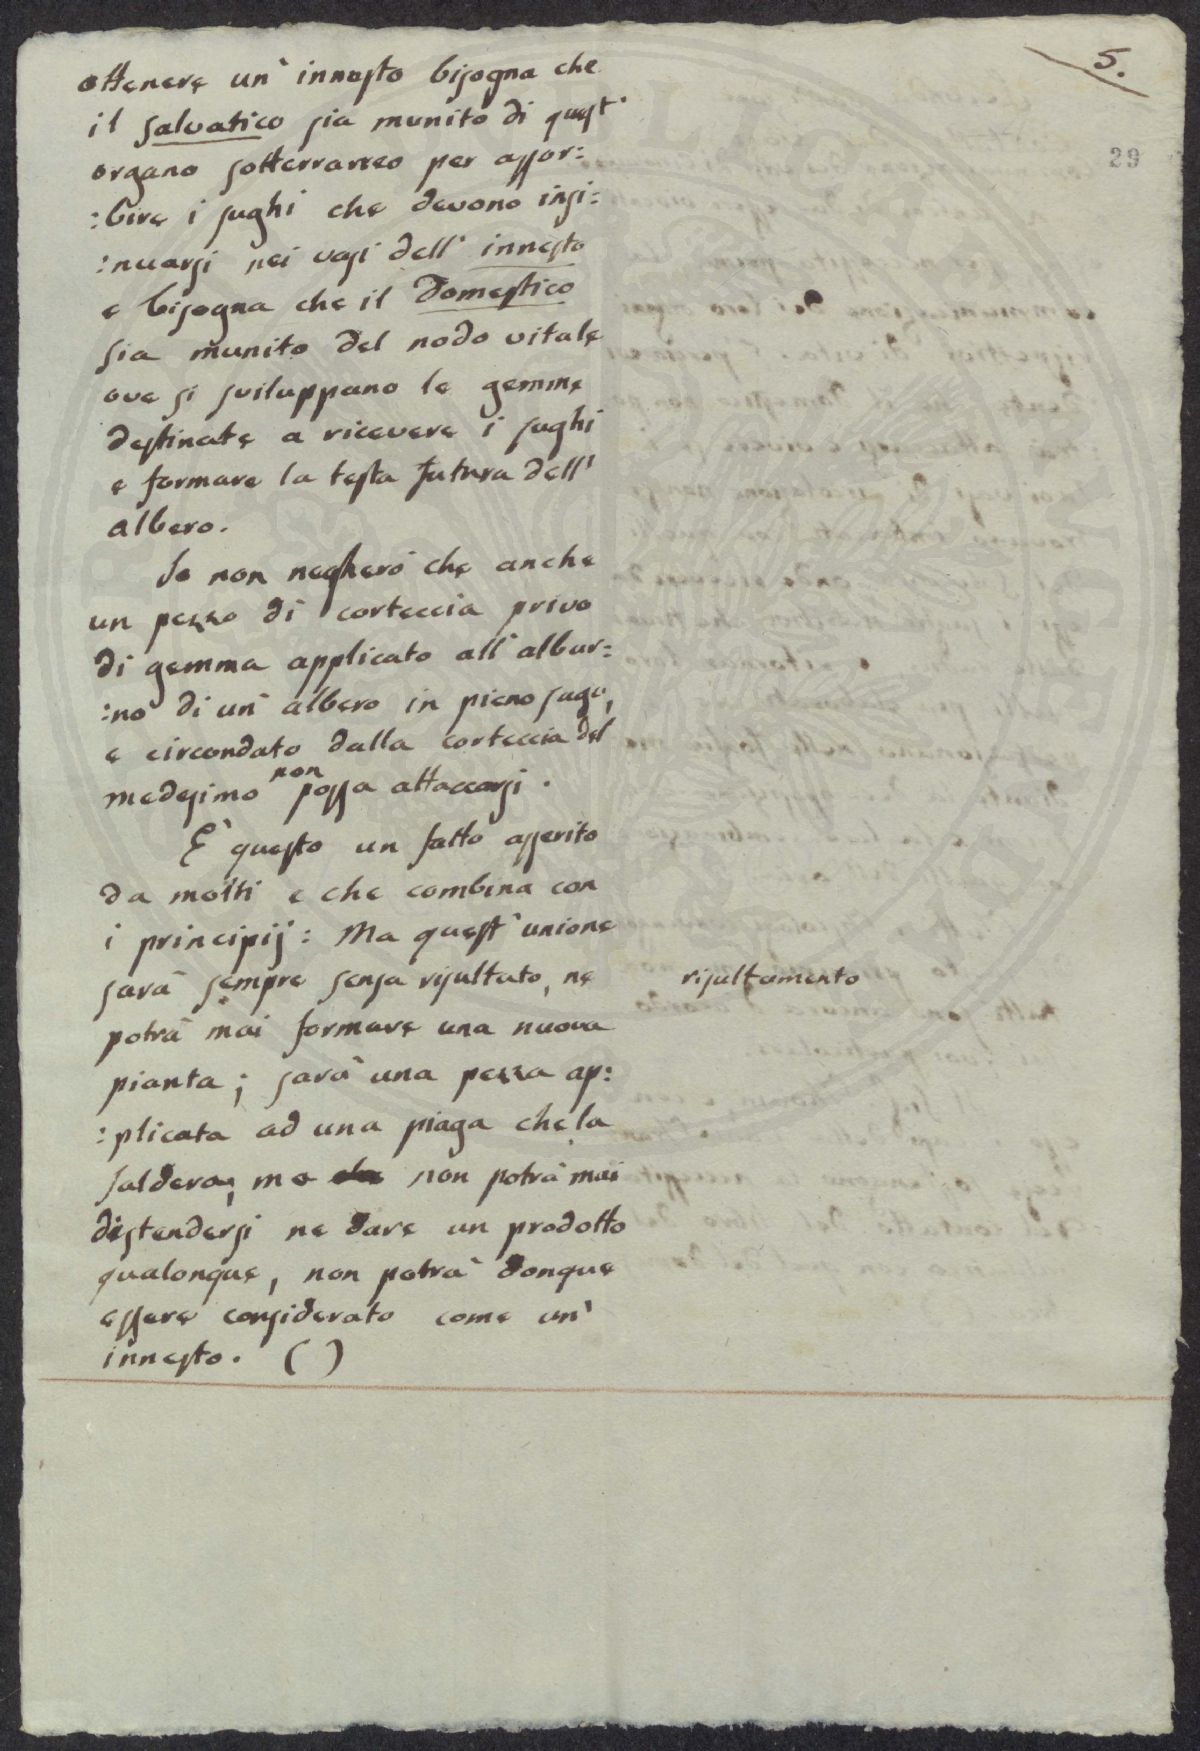 5.
29
ottenere un' innesto bisogna che
il salvatico sia munito di quest'
organo sotterraneo per assor:
:bire i sughi che devono insi:
:nuarsi nei vasi dell' innesto
e bisogna che il domestico
sia munito del nodo vitale
ove si sviluppano le gemme
destinate a ricevere i sughi
e formare la testa futura dell'
albero.
Io non negherò che anche
un pezzo di corteccia privo
di gemma applicato all' albur:
:no di un' albero in pieno sugo,
e circondato dalla corteccia del
medesimo non possa attaccarsi.
E' questo un fatto asserito
da molti e che combina con
i principij: Ma quest' unione
sarà sempre senza risultato, ne
risultamento
potrà mai formare una nuova
pianta; sarà una pezza ap:
:plicata ad una piaga che la
salderà, ma non potrà mai
distendersi ne dare un prodotto
qualonque, non potrà donque
essere considerato come un'
innesto. ( )